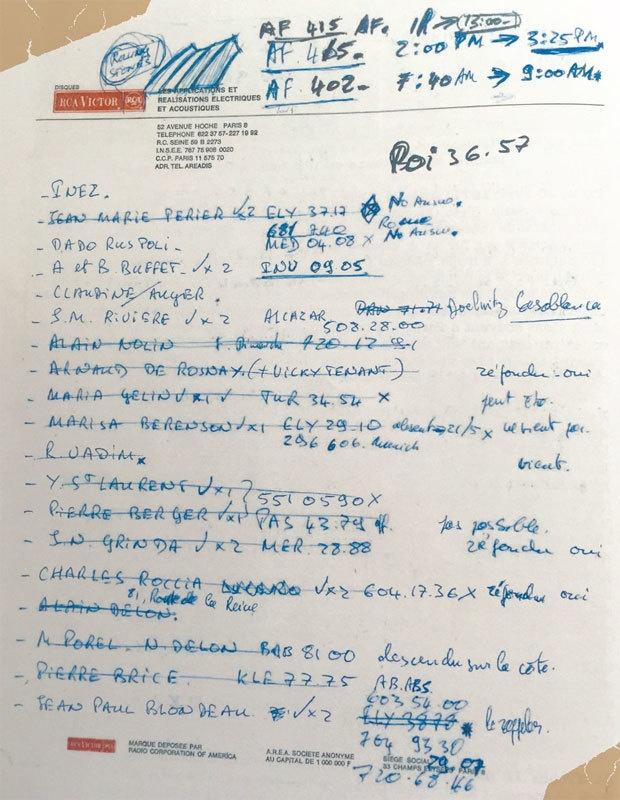 AF 415 AF. 1R → 13:00-
AF. 465. 2:00 PM → 3:25 PM.
AF. 402- 7:40 AM → 9:00 AM
ROLLING STONES
DISQUES
RCA VICTOR RCA
LES APPLICATIONS ET
REALISATIONS ELECTRIQUES
ET ACOUSTIQUES
52 AVENUE HOCHE PARIS 8
TELEPHONE 622 37 57-227 19 92
R.C. SEINE 59 B 2273
I.N.S.E.E. 767 75 908 0020
C.C.P. PARIS 11 575 70
ADR. TEL. AREADIS
Poi 36.57
- INEZ.
- JEAN MARIE PERIER √x2 ELY 37.17 No Answ.
681 740 Rome
- DADO RUSPOLI - MED 04.08 x No Answ.
- A et B. BUFFET - √x 2 INV 09 05
- CLAUDINE AUGER.
- S.M. RIVIERE √x 2 ALCAZAR Casablanca
508.28.00
- ALAIN NOLIN
- ARNAUD DE ROSNAY (+ VICKY TENANT) répondu - oui
- MARIA GELIN √x1 √ TUR 34.54 x peut etr.
- MARISA BERENSON √x1 ELY 29.10 absente 21/5 x ne vient pas.
296 606. Munich
- R. VADIM x vient.
- Y. St LAURENT √x1 551 0590 X
- PIERRE BERGER √x1 PAS 43.79 pas possible.
- S.N GRINDA √x2 MER. 28.88 répondu oui
- CHARLES ROCCIA √x2 604.17.36 X répondu oui
81, Route de la Reine
- ALAIN DELON.
- M. POREL. N. DELON BAB 81 00 descendu sur la côte.
- PIERRE BRICE. KLE 77.75 AB.ABS.
603 54.00
- JEAN PAUL BLONDEAU √x2 ELY 3870 * le rappeler.
704 93 30
720.68.46
RCA VICTOR
MARQUE DEPOSEE PAR
RADIO CORPORATION OF AMERICA
A.R.E.A. SOCIETE ANONYME
AU CAPITAL DE 1 000 000 F
SIEGE SOCIAL
53 CHAMPS ELYSEES PARIS 8